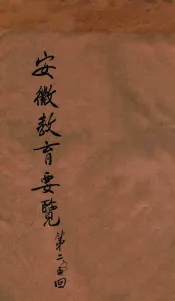 安徽教育要覽
第二回